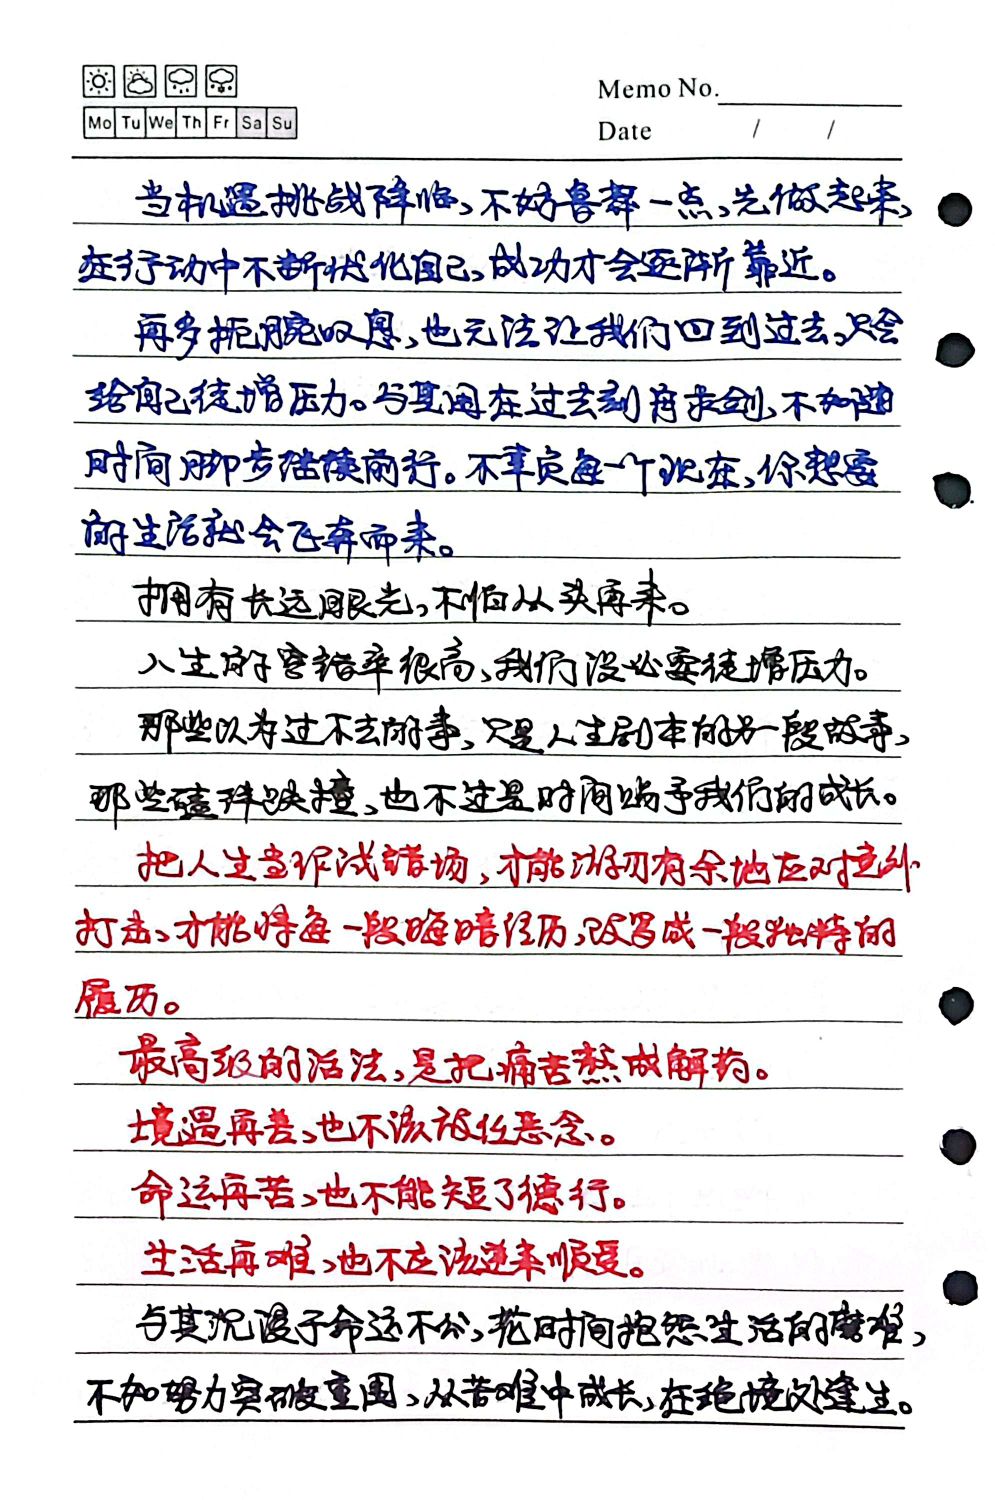 Memo No.
Mo Tu We Th Fr Sa Su
Date / /
当机遇挑战降临,不妨鲁莽一点,先做起来,
在行动中不断优化自己,成功才会逐渐靠近。
再多扼腕叹息,也无法让我们回到过去,只会
给自己徒增压力。与其困在过去刻舟求剑,不如随
时间脚步继续前行。不辜负每一个现在,你想要
的生活就会飞奔而来。
拥有长远眼光,不怕从头再来。
人生的容错率很高,我们没必要徒增压力。
那些以为过不去的事,只是人生剧本的另一段故事,
那些磕绊跌撞,也不过是时间赐予我们的成长。
把人生当作试错场,才能游刃有余地应对意外
打击,才能将每一段晦暗经历,改写成一段独特的
履历。
最高级的活法,是把痛苦熬成解药。
境遇再差,也不该放任恶念。
命运再苦,也不能短了德行。
生活再难,也不应该逆来顺受。
与其沉浸于命运不公,花时间抱怨生活的磨难,
不如努力突破重围,从苦难中成长,在绝境处逢生。